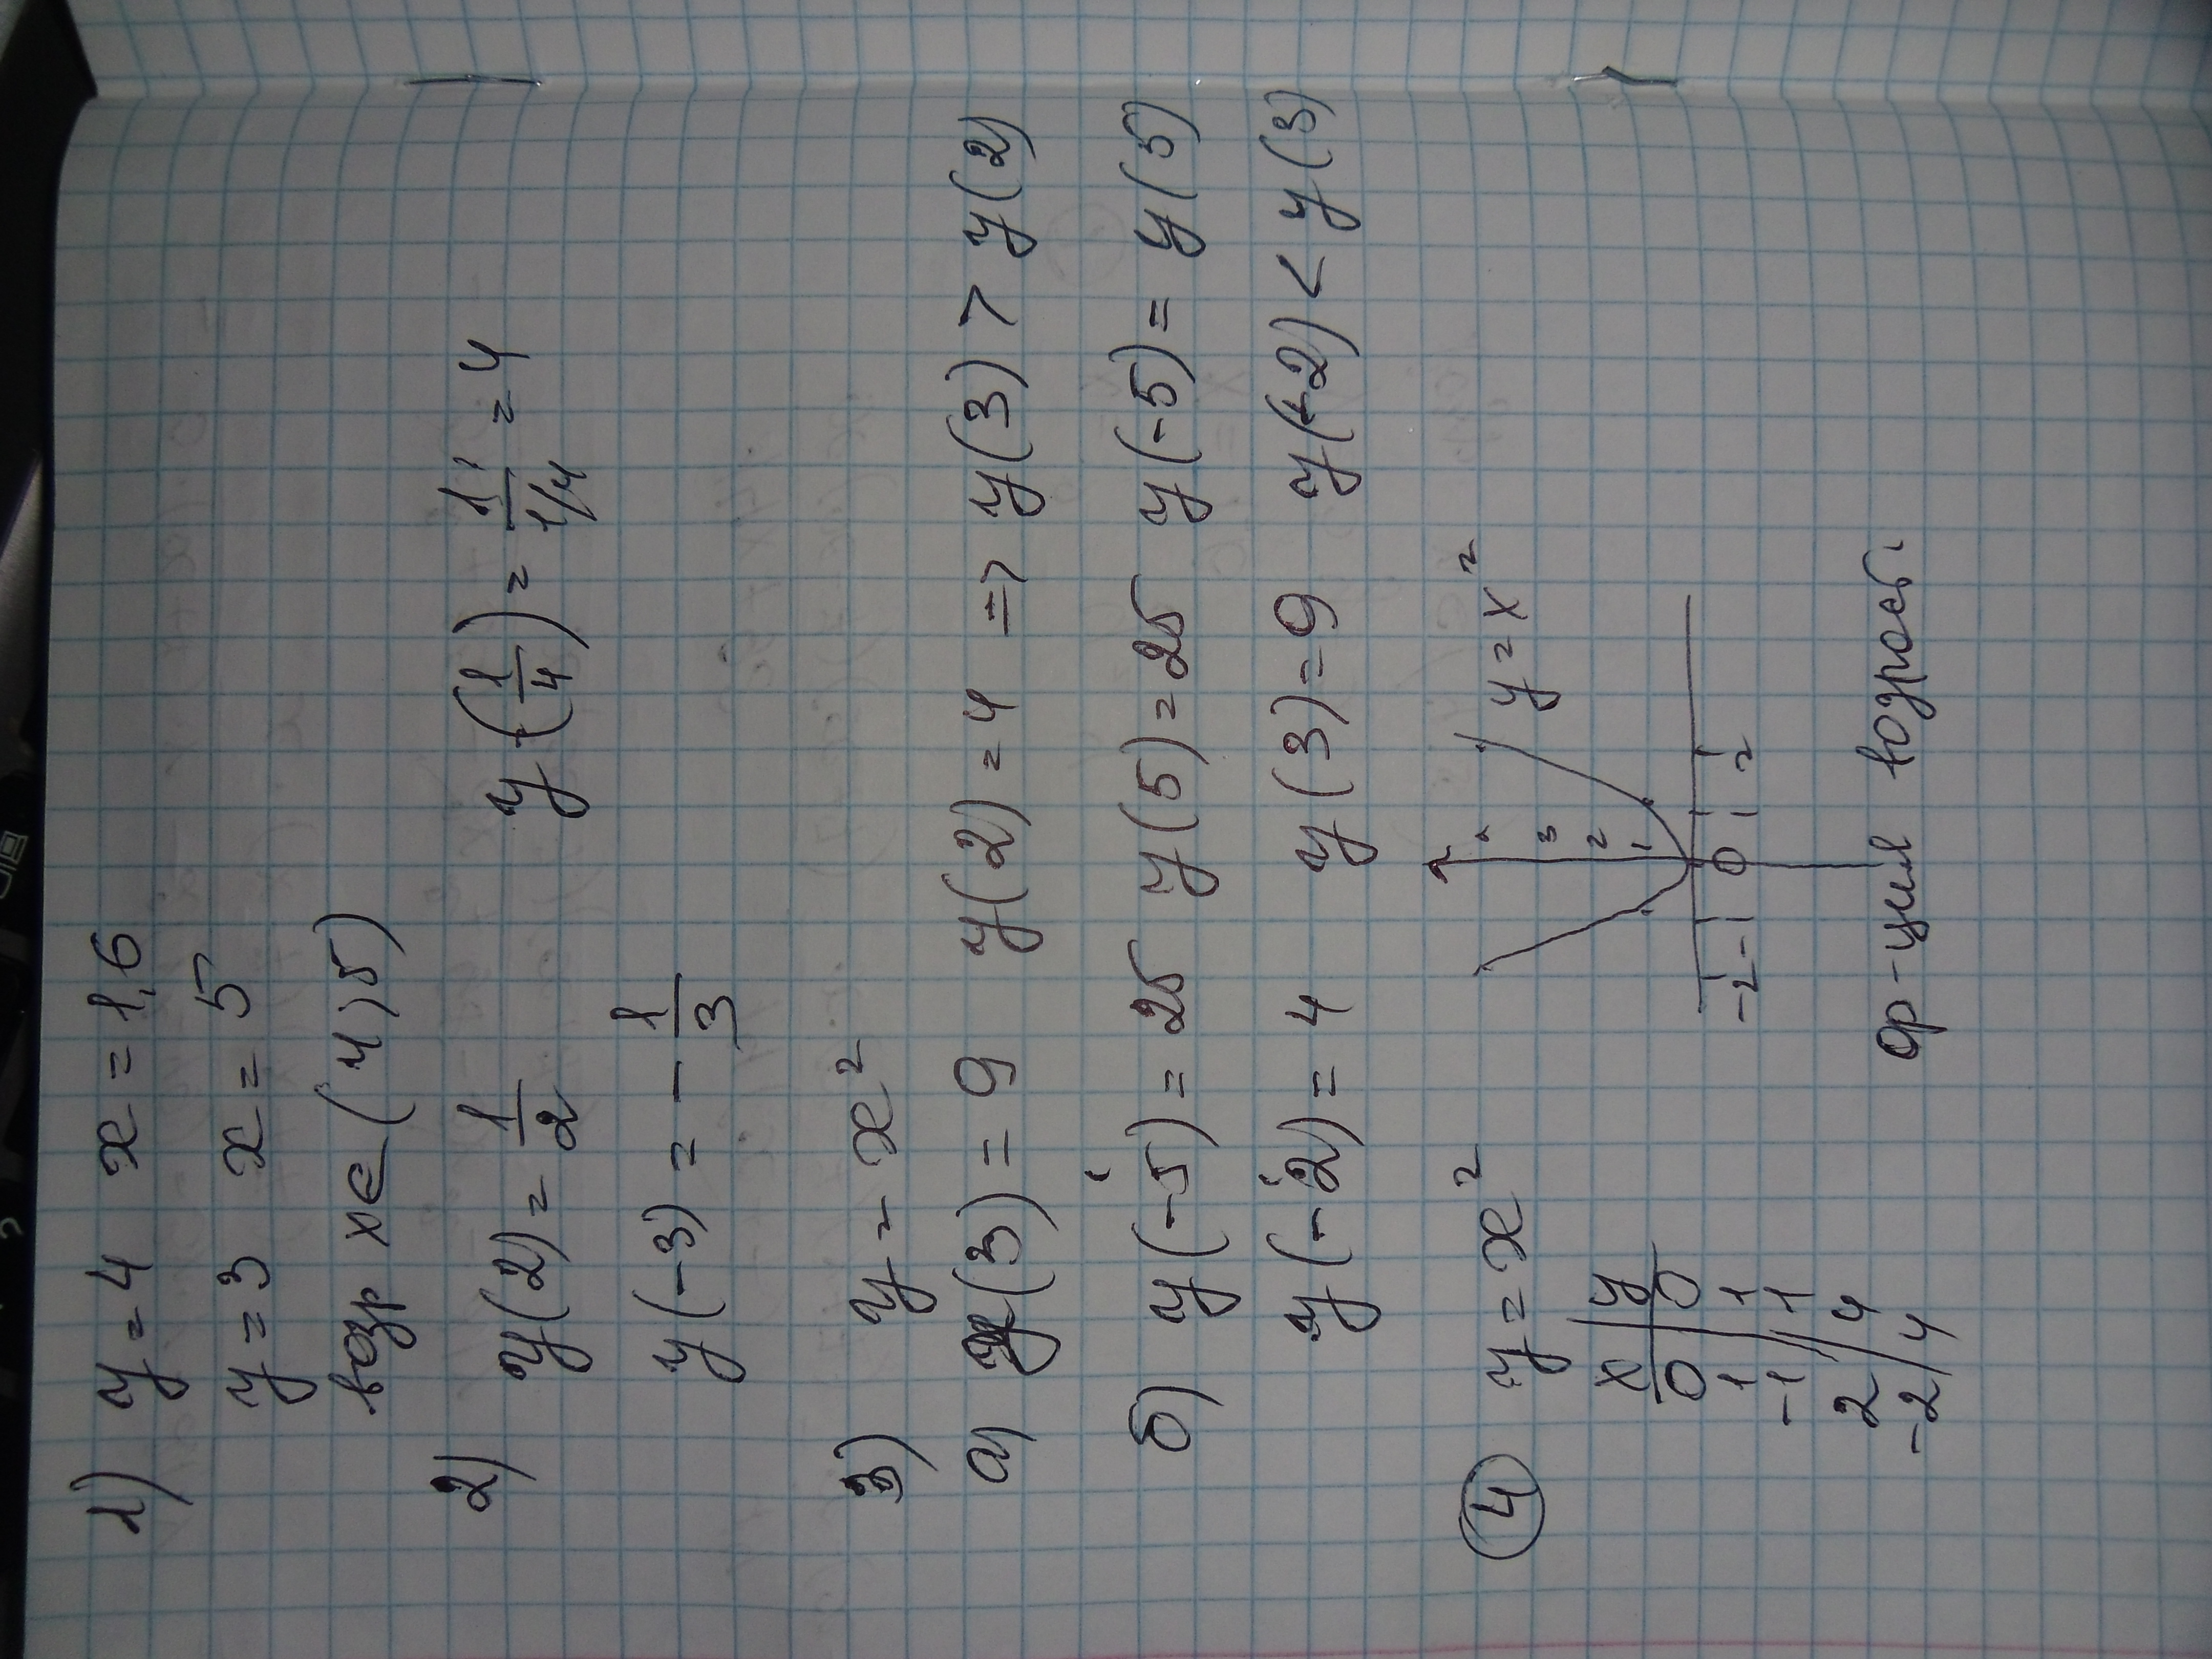 1) y = 4 x = 1,6
y = 3 x = 5
возр x∈(4;5)
2) y(2) = 1/2 y(1/4) = 1/1/4 = 4
y(-3) = - 1/3
3) y = x²
а) y(3) = 9 y(2) = 4 => y(3) > y(2)
б) y(-5) = 25 y(5) = 25 y(-5) = y(5)
y(-2) = 4 y(3) = 9 y(-2) < y(3)
4 y = x²
x y
0 0
1 1
-1 1
2 4
-2 4
y = x²
3
2
1
-2 -1 0 1 2
ф-ция возраст